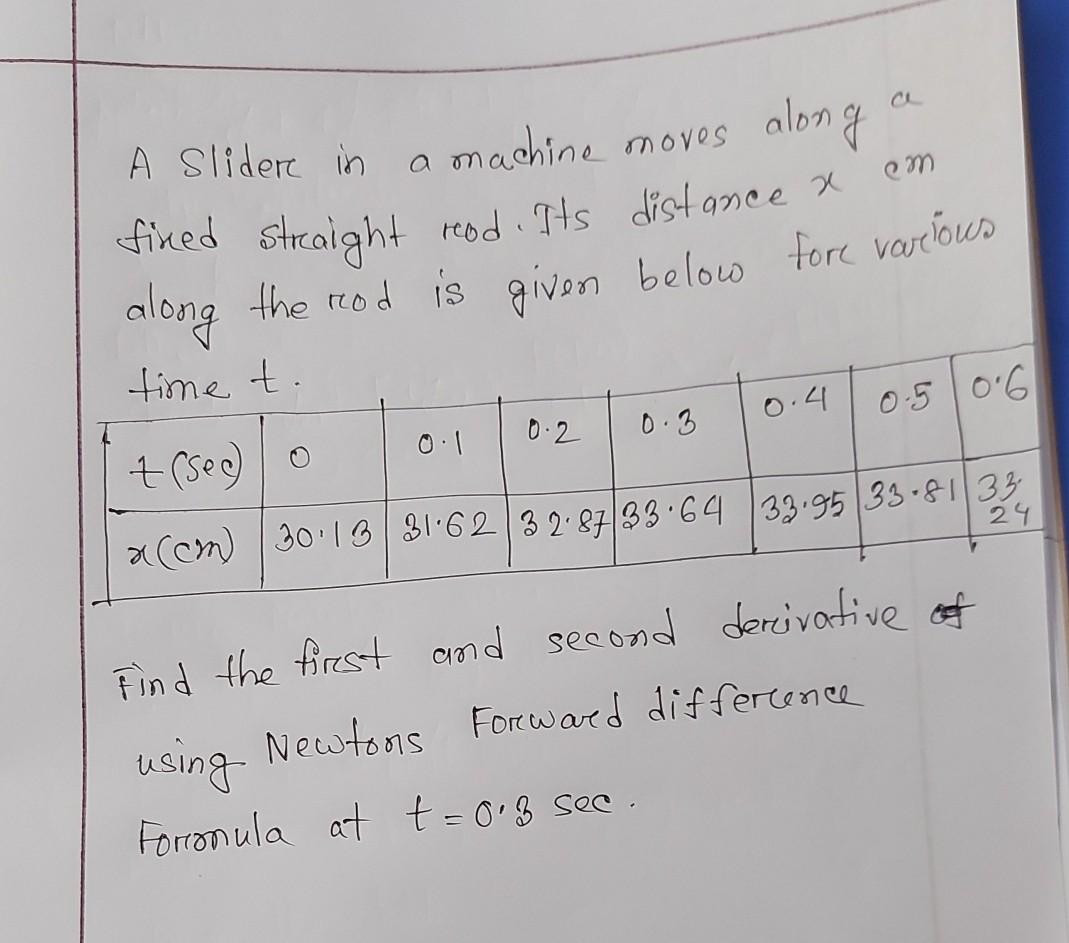 A Slider in a machine moves along a
fixed straight rod. Its distance x cm
along the rod is given below for various
time t.
t (sec) 0 0.1 0.2 0.3 0.4 0.5 0.6
x (cm) 30.13 31.62 32.87 33.64 33.95 33.81 33.24
Find the first and second derivative of
using Newtons Forward difference
Formula at t = 0.3 sec.